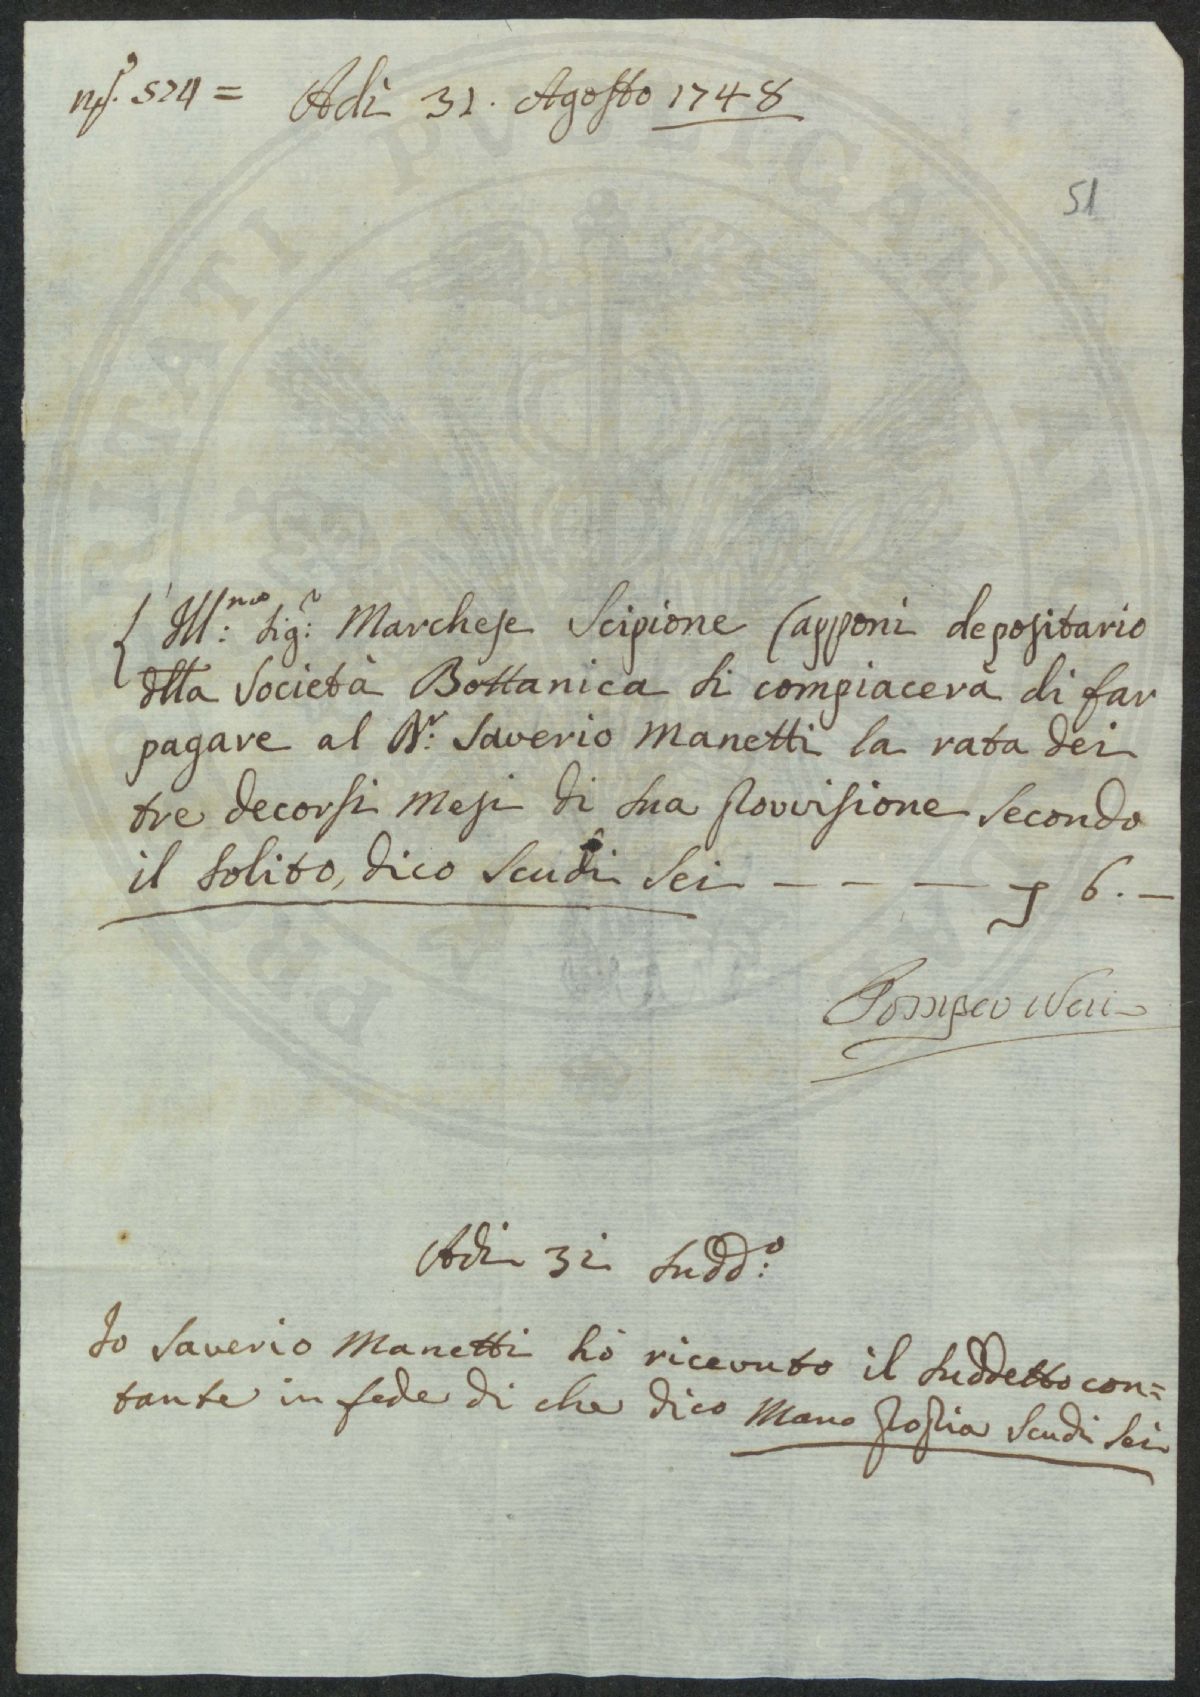 574 = Adì 31. Agosto 1748
51
Ill:mo Sig:r Marchese Scipione Capponi depositario
dlla Società Bottanica si compiacerà di far
pagare al Dr: Saverio Manetti la rata dei
tre decorsi Mesi di sua provvisione secondo
il solito, dico Scudi Sei — — — — 6. —
Pompeo Neri
Adì 31 sudd:o
Io Saverio Manetti hò ricevuto il suddetto con=
tante in fede di che dico Mano propia Scudi Sei
PUBLICAE